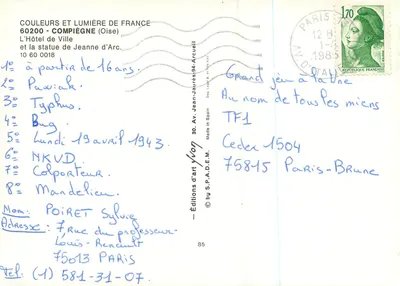 COULEURS ET LUMIÈRE DE FRANCE
60200 - COMPIÈGNE (Oise)
L'Hôtel de Ville
et la statue de Jeanne d'Arc.
10 60 0018
1° à partir de 16 ans.
2° Puxiah.
3° Typhus.
4° Bug.
5° Lundi 19 avril 1943.
6° NKVD.
7° Colporteur.
8° Mandelieu.
Nom: POIRET Sylvie
Adresse: 7 rue du professeur
Louis-Renault
75013 PARIS
Tel: (1) 581-31-07.
Editions d'art yvon
30, Av. Jean-Jaurès-94-Arcueil
Made in Spain
© by S.P.A.D.E.M.
85
PARIS
1,70
RÉPUBLIQUE FRANÇAISE
Grand jeu à la Une
Au nom de tous les miens
TF1
Cedex 1504
75815 Paris-Brune